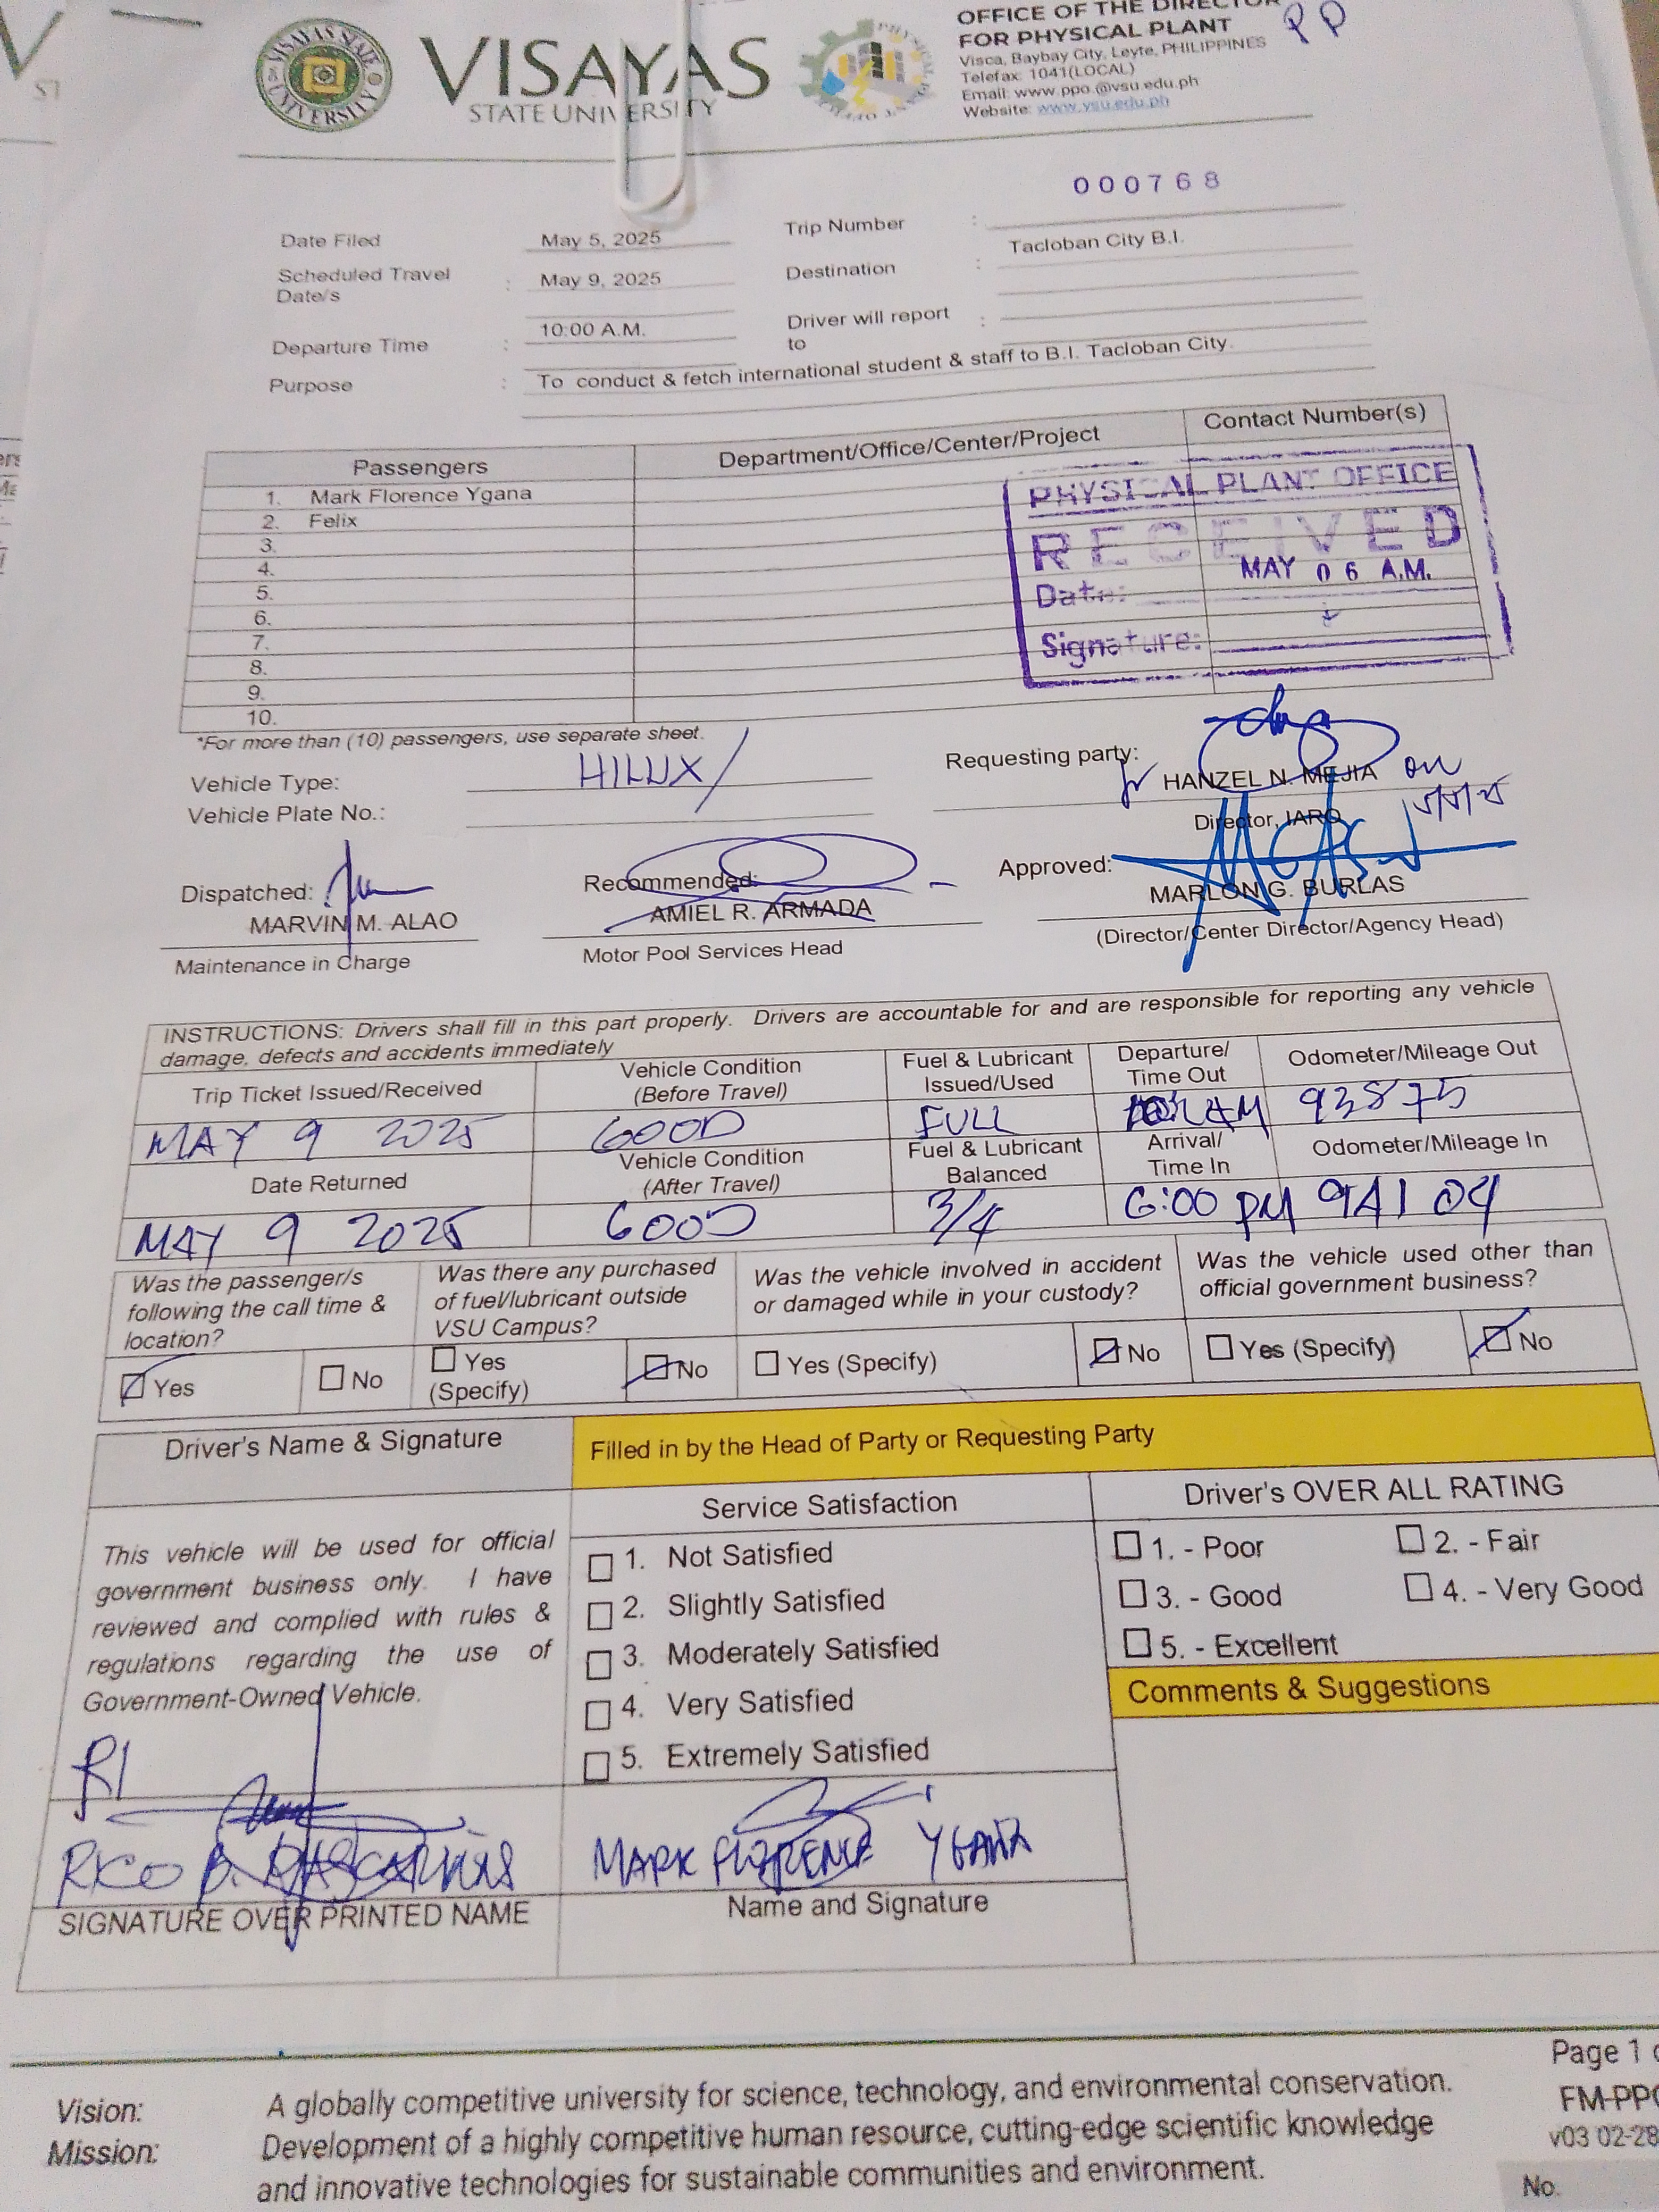 VISAYAS STATE UNIVERSITY
VISAYAS
STATE UNIVERSITY
OFFICE OF THE DIRECTOR
FOR PHYSICAL PLANT
Visca, Baybay City, Leyte, PHILIPPINES
Telefax: 1041(LOCAL)
Email: www.ppo.@vsu.edu.ph
Website: www.vsu.edu.ph
000768
Date Filed May 5, 2025 Trip Number :
Scheduled Travel Date/s : May 9, 2025 Destination : Tacloban City B.I.
Departure Time : 10:00 A.M. Driver will report to :
Purpose : To conduct & fetch international student & staff to B.I. Tacloban City.
Passengers Department/Office/Center/Project Contact Number(s)
1. Mark Florence Ygana
2. Felix
3.
4.
5.
6.
7.
8.
9.
10.
PHYSICAL PLANT OFFICE
RECEIVED
MAY 06 A.M.
Date:
Signature:
*For more than (10) passengers, use separate sheet.
Vehicle Type: HILUX
Vehicle Plate No.:
Requesting party:
HANZEL N. MEJIA
Director, IARO
Dispatched:
MARVIN M. ALAO
Maintenance in Charge
Recommended:
AMIEL R. ARMADA
Motor Pool Services Head
Approved:
MARLON G. BURLAS
(Director/Center Director/Agency Head)
INSTRUCTIONS: Drivers shall fill in this part properly. Drivers are accountable for and are responsible for reporting any vehicle
damage, defects and accidents immediately
Trip Ticket Issued/Received Vehicle Condition (Before Travel) Fuel & Lubricant Issued/Used Departure/ Time Out Odometer/Mileage Out
MAY 9 2025 GOOD FULL 93875
Date Returned Vehicle Condition (After Travel) Fuel & Lubricant Balanced Arrival/ Time In Odometer/Mileage In
MAY 9 2025 GOOD 3/4 6:00 PM 94104
Was the passenger/s following the call time & location?
Was there any purchased of fuel/lubricant outside VSU Campus?
Was the vehicle involved in accident or damaged while in your custody?
Was the vehicle used other than official government business?
Yes No Yes (Specify) No Yes (Specify) No Yes (Specify) No
Driver's Name & Signature Filled in by the Head of Party or Requesting Party
Service Satisfaction Driver's OVER ALL RATING
This vehicle will be used for official
government business only. I have
reviewed and complied with rules &
regulations regarding the use of
Government-Owned Vehicle.
1. Not Satisfied
2. Slightly Satisfied
3. Moderately Satisfied
4. Very Satisfied
5. Extremely Satisfied
1. - Poor 2. - Fair
3. - Good 4. - Very Good
5. - Excellent
Comments & Suggestions
RICO B.
SIGNATURE OVER PRINTED NAME
MARK FLORENCE YGANA
Name and Signature
Page 1
Vision: A globally competitive university for science, technology, and environmental conservation.
Mission: Development of a highly competitive human resource, cutting-edge scientific knowledge
and innovative technologies for sustainable communities and environment.
FM-PPO
v03 02-28
No.